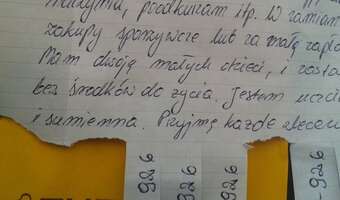 naczynia, poodkurzam itp. W zamian
zakupy spożywcze lub za małą zapła
Mam dwoję małych dzieci, i zosta
bez środków do życia. Jestem uczci
i sumienna. Przyjmę każde zlecen
926
926
926
-926